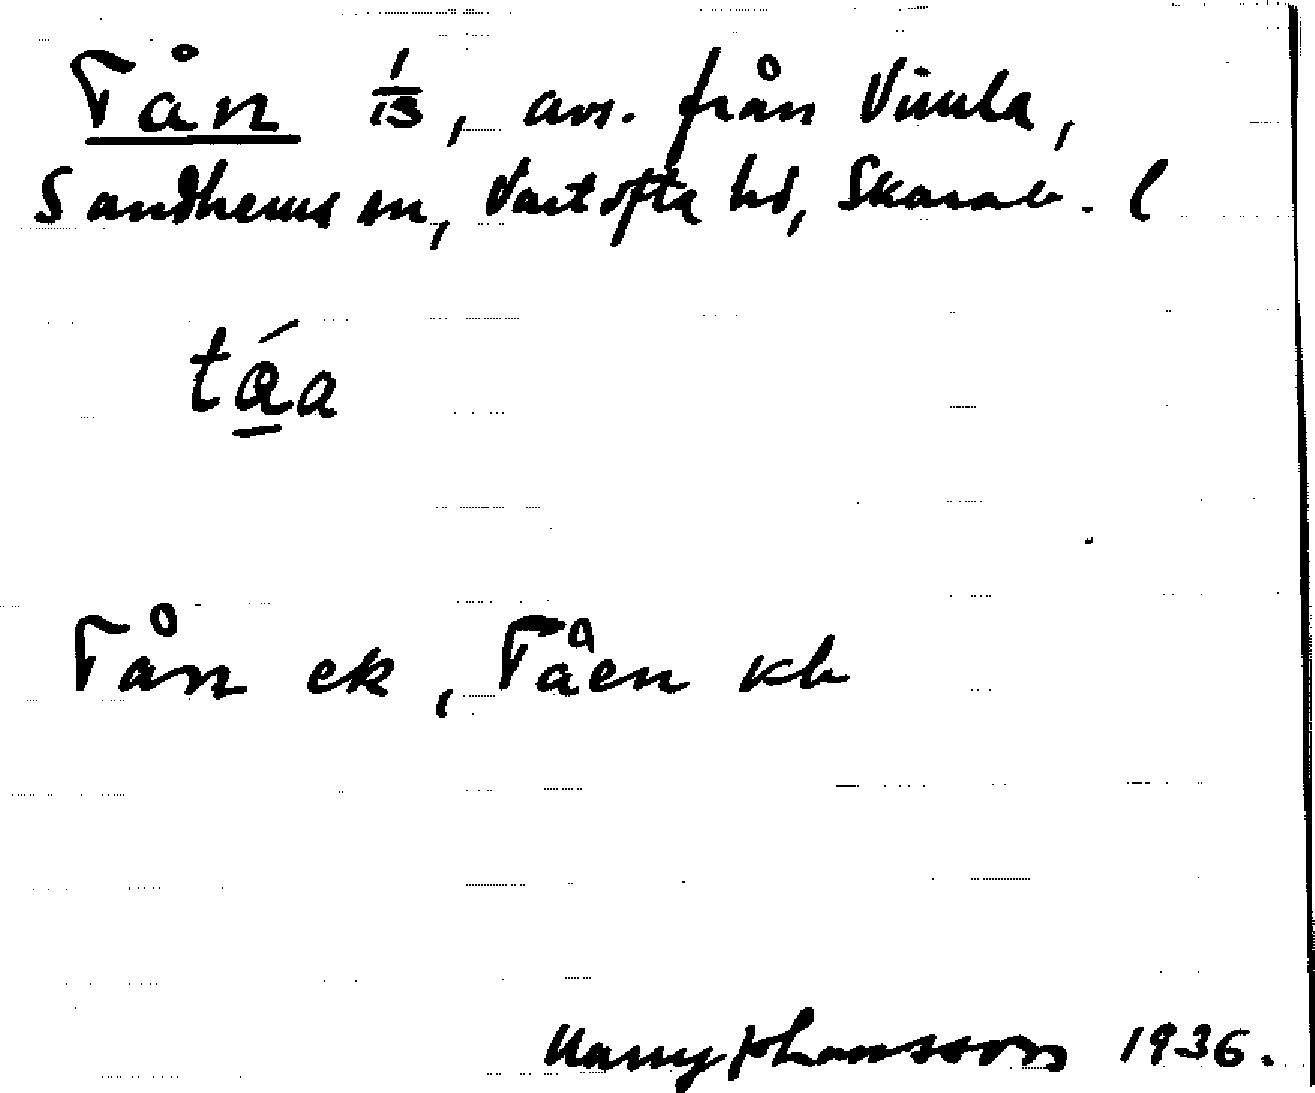 Tån 1/13, avs. från Vimla,
Sandhems sn, Vartofta hd, Skarab. l
tá̱a
Tån ek, Tåen kb
Harry Johansson 1936.